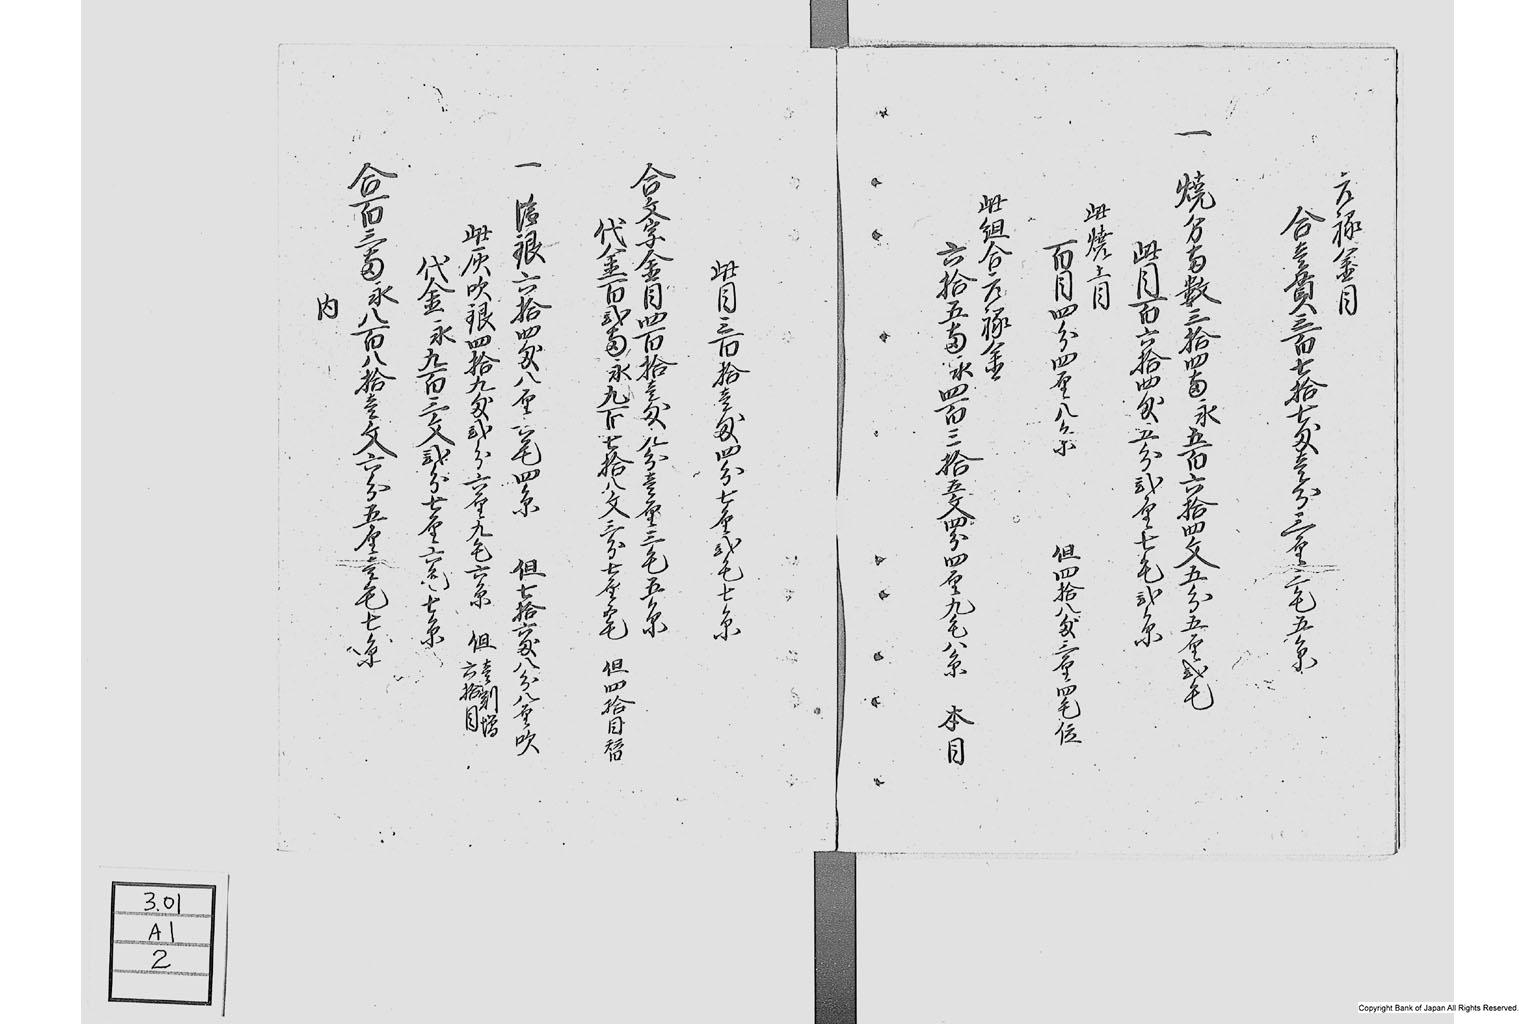 元禄金目
合壱貫三百七拾七匁壱分三厘三毛五糸
一 焼分両数三拾四両永五百六拾四文五分五厘弐毛
此目百六拾四匁五分弐厘七毛弐糸
此焼上目
百目四分四厘八糸 但四拾八匁三厘四毛位
此組合元禄金
六拾五両永四百三拾五文四分四厘九毛八糸 本目
此目三百拾壱匁四分七厘弐毛七糸
合文字金目四百拾壱匁八分壱厘三毛五糸
代金百弐両永九百七拾八文三分七厘五毛 但四拾目替
一 銀六拾四匁八厘六毛四糸 但七拾六匁八分八厘吹
此灰吹銀四拾九匁弐分六厘九毛六糸 但 壱割増 六拾目
代金永九百三文弐分七厘六毛七糸
合百三両永八百八拾壱文六分五厘壱毛七糸
内
3.01
A1
2
Copyright Bank of Japan All Rights Reserved.